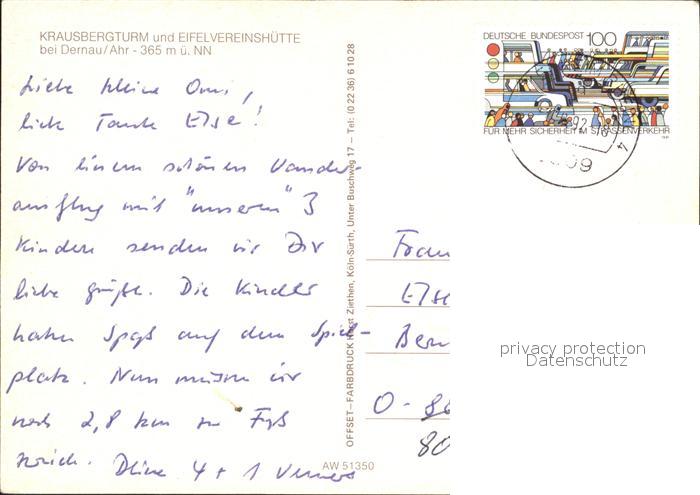 KRAUSBERGTURM und EIFELVEREINSHÜTTE
bei Dernau/Ahr - 365 m ü. NN
Liebe kleine Omi,
liebe Tante Else!
Von einem schönen Wander-
ausflug mit "unseren" 3
Kindern senden wir Dir
liebe Grüße. Die Kinder
haben Spaß auf dem Spiel-
platz. Nun müssen wir
noch 2,8 km zu Fuß
zurück. Deine 4 + 1
AW 51350
OFFSET-FARBDRUCK Horst Ziethen, Köln-Sürth, Unter Buschweg 17 — Tel: (0 22 36) 6 10 28
DEUTSCHE BUNDESPOST 100
FÜR MEHR SICHERHEIT IM STRASSENVERKEHR
Frau
Else
O-
80
privacy protection
Datenschutz